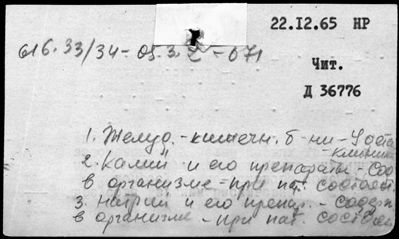 22.IZ.65 НР
616.33/34-05.3.2-071
Чит.
Д 36776
1. Желуд.-кишечн. б-ни-У обта
-Клиника
2. Калий и его препараты-Сод
в организме-при пат. состоян.
3. Натрий и его препар.-Содерж
в организме-при пат. состоян